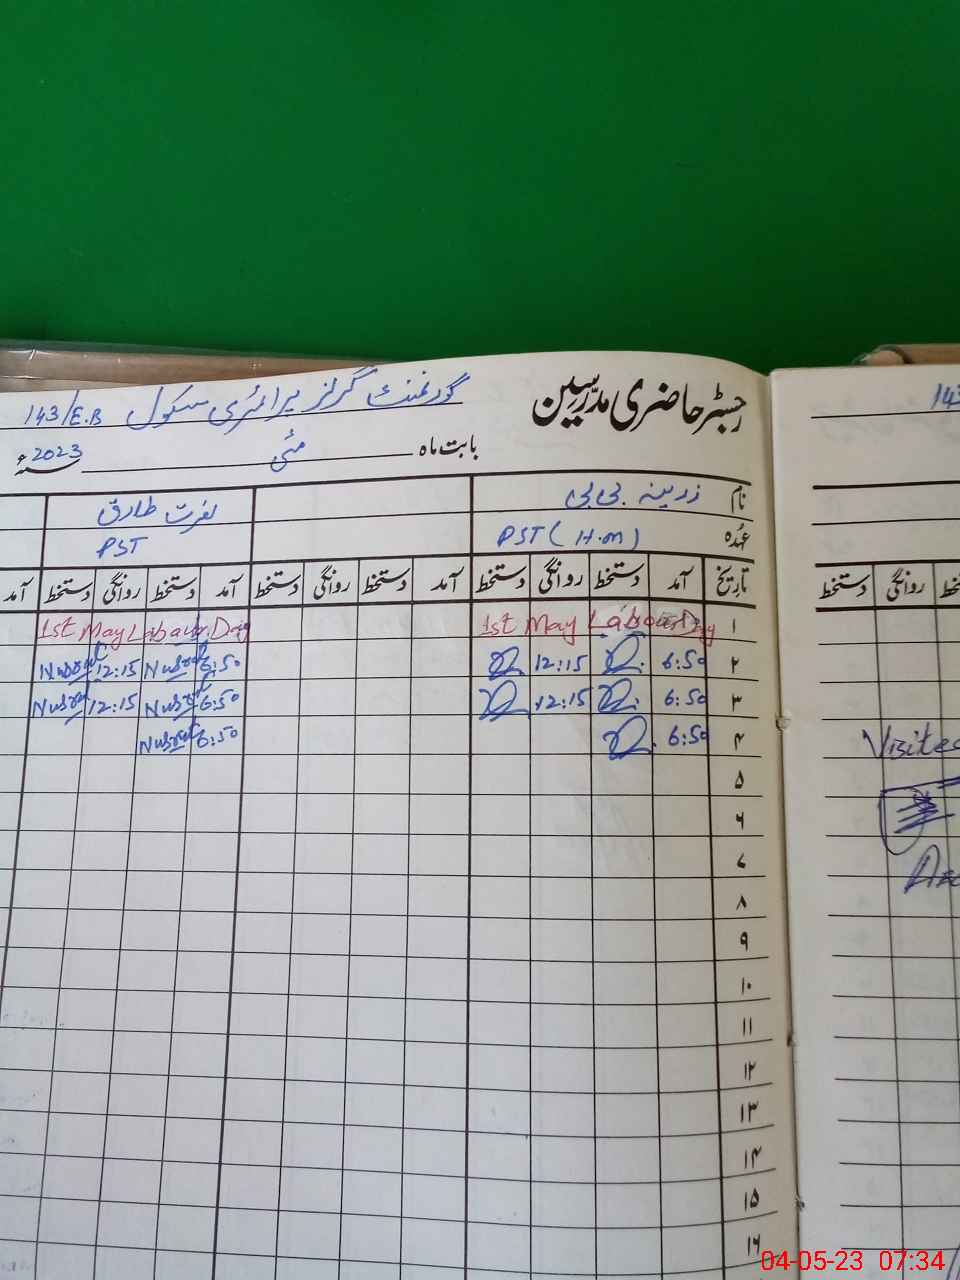 رجسٹر حاضری مدرسین گورنمنٹ گرلز پرائمری سکول 143/E.B
بابت ماہ مئی سنہ 2023ء
نام زرینہ بی بی نصرت طارق
عہدہ PST (H.M) PST
تاریخ آمد دستخط روانگی دستخط آمد دستخط روانگی دستخط آمد دستخط روانگی دستخط آمد
۱ 1st May Labour Day 1st May Labour Day
۲ 6:50 12:15 6:50 Nusrat 12:15 Nusrat
۳ 6:50 12:15 6:50 Nusrat 12:15 Nusrat
۴ 6:50 6:50 Nusrat
۵
۶
۷
۸
۹
۱۰
۱۱
۱۲
۱۳
۱۴
۱۵
۱۶
دستخط روانگی
04-05-23 07:34